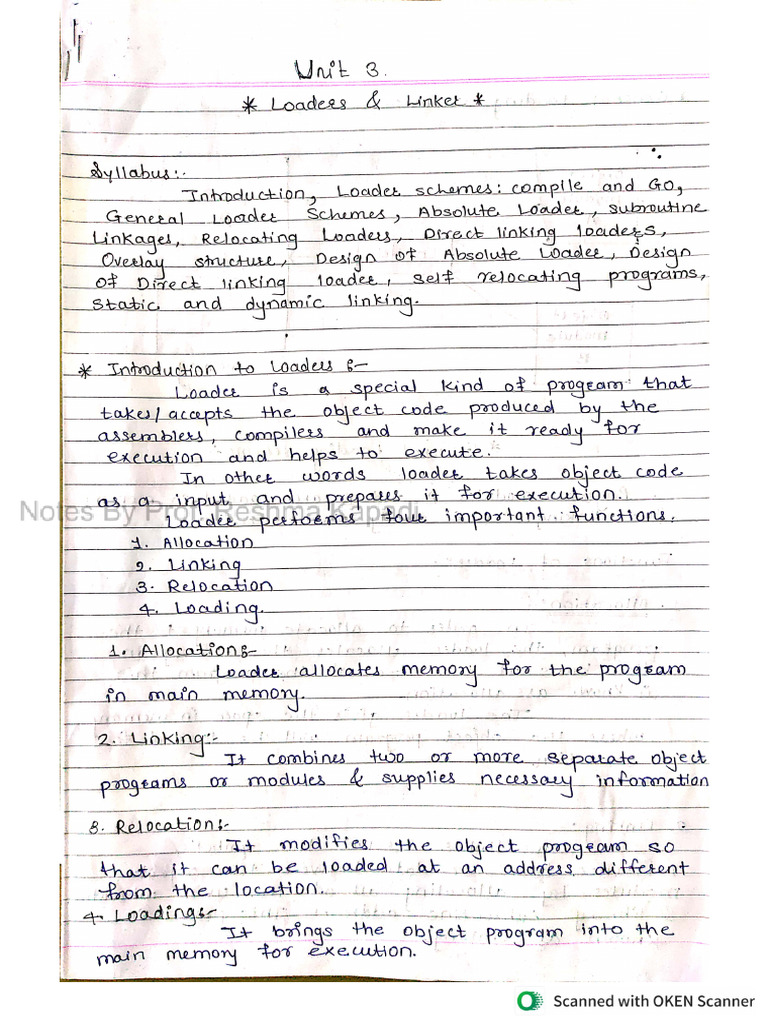 Unit 3.
* Loaders & Linker *
Syllabus:-
Introduction, Loader schemes: compile and GO,
General Loader Schemes, Absolute Loader, subroutine
Linkages, Relocating Loaders, Direct linking loaders,
Overlay structure, Design of Absolute Loader, Design
of Direct linking loader, self relocating programs,
static and dynamic linking.
* Introduction to Loaders :-
Loader is a special kind of program that
takes/accepts the object code produced by the
assemblers, compilers and make it ready for
execution and helps to execute.
In other words loader takes object code
as a input and prepares it for execution.
Notes By Prof. Reshma Kapadi
Loader performs four important functions.
1. Allocation
2. Linking
3. Relocation
4. Loading.
1. Allocation:-
Loader allocates memory for the program
in main memory.
2. Linking:-
It combines two or more separate object
programs or modules & supplies necessary information
3. Relocation:-
It modifies the object program so
that it can be loaded at an address different
from the location.
4. Loading:-
It brings the object program into the
main memory for execution.
Scanned with OKEN Scanner